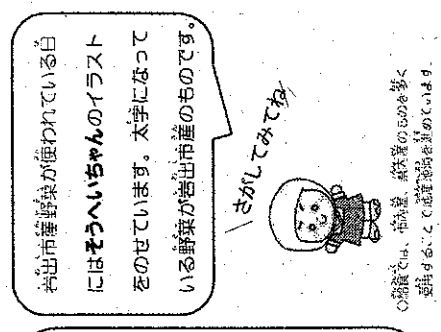 岩出市産野菜が使われている日
にはそうへいちゃんのイラスト
をのせています。太字になって
いる野菜が岩出市産のものです。
さがしてみてね
○給食では、市内産、県内産のものを多く
使用することで地産地消を進めています。